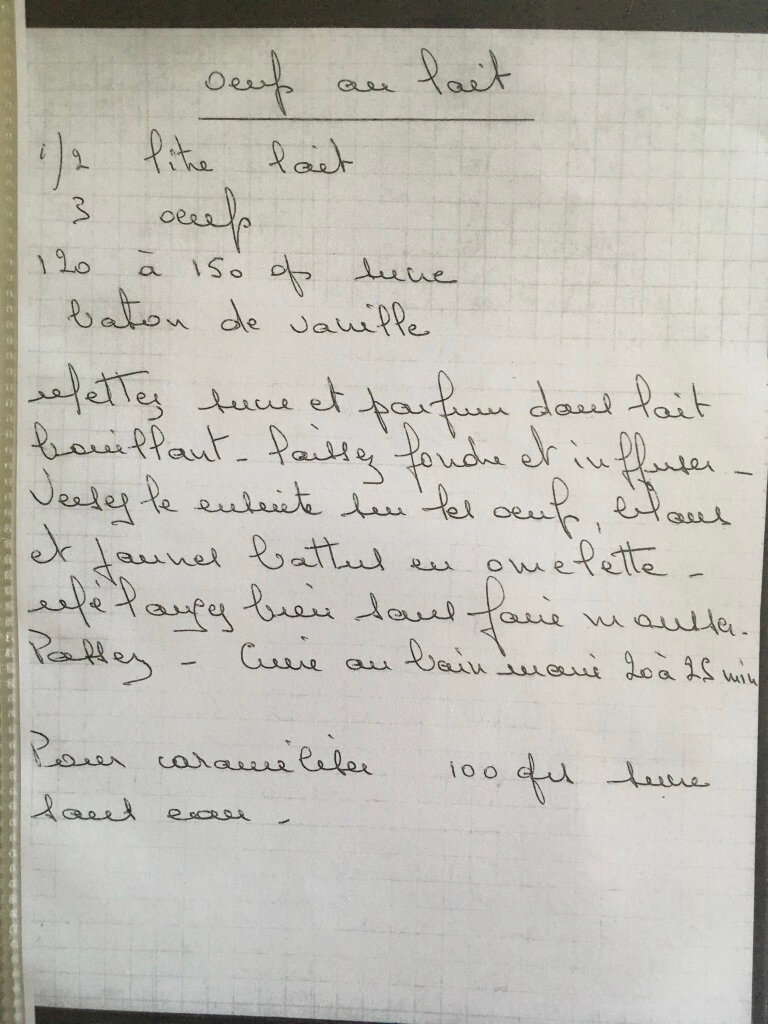 oeufs au lait
1/2 litre lait
3 oeufs
120 à 150 gs sucre
baton de vanille
Mettez sucre et parfum dans lait
bouillant - laissez fondre et inffuser -
Versez le ensuite sur les oeufs, blancs
et jaunes battus en omelette -
Mélangez bien sans faire mousser.
Passez - Cuire au bain marie 20 à 25 min
Pour caraméliser 100 grs sucre
sans eau -